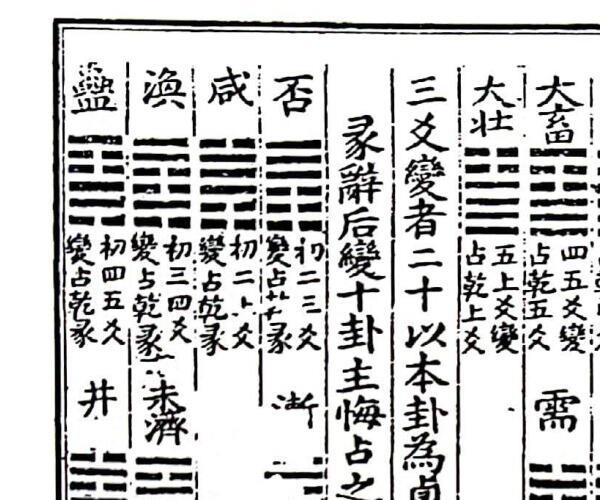 大畜
四五爻變
占乾五爻
需
大壯
五上爻變
占乾上爻
三爻變者二十以本卦為貞
彖辭后變十卦主悔占之
否
初二三爻
變占彖
漸
咸
初二爻
變占乾彖
渙
初三四爻
變占乾彖
未濟
蠱
初四五爻
變占乾彖
井